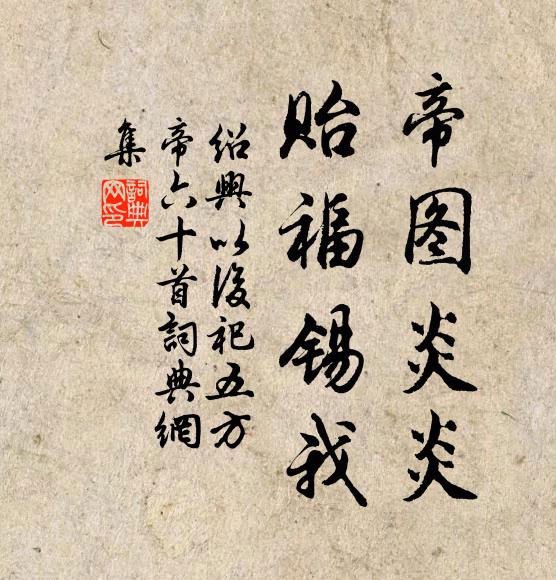 帝图炎炎
贻福锡我
绍興以後祀五方
帝六十首詞典網
集
詞典網印